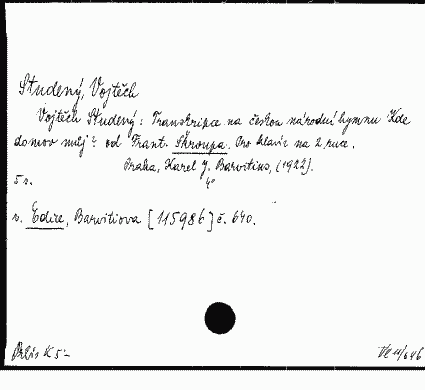 Studený, Vojtěch
Vojtěch Studený: Transkripce na českou národní hymnu "Kde
domov můj" od Frant. Škroupa. Pro klavír na 2 ruce.
Praha, Karel J. Barvitius, (1922).
5 s. 4°
v. Edice, Barvitiova [115986] č. 640.
Kčs